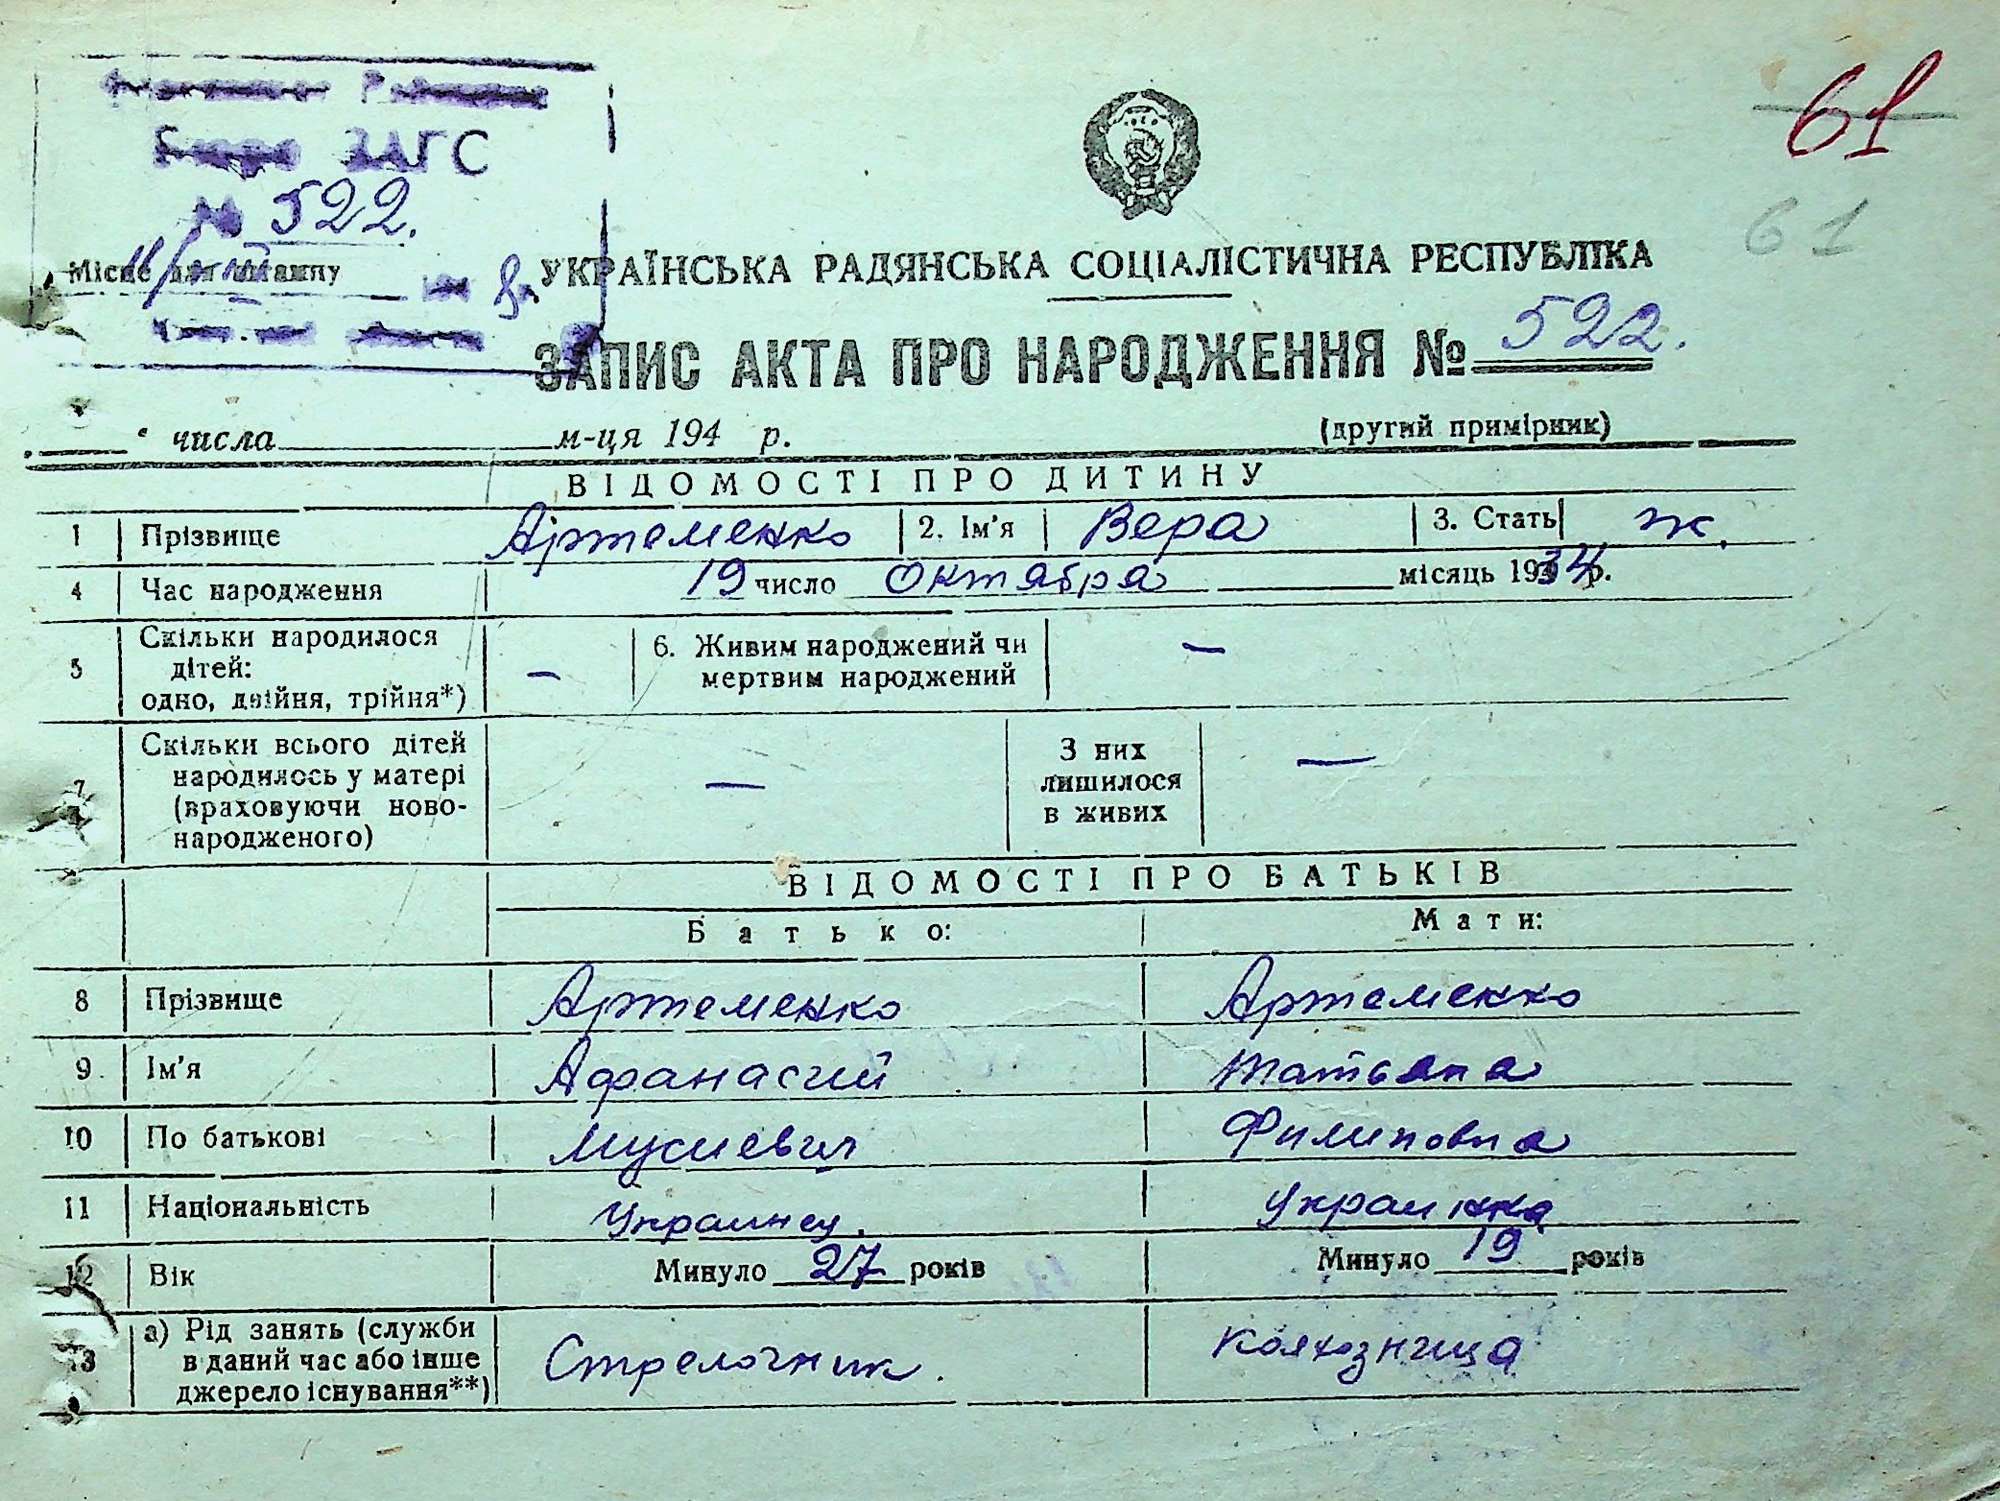 61
61
Бюро ЗАГС
№ 522.
Місце для штампу
УКРАЇНСЬКА РАДЯНСЬКА СОЦІАЛІСТИЧНА РЕСПУБЛІКА
ЗАПИС АКТА ПРО НАРОДЖЕННЯ № 522.
" числа м-ця 194 р. (другий примірник)
ВІДОМОСТІ ПРО ДИТИНУ
1 Прізвище Артеменко 2. Ім'я Вера 3. Стать ж.
4 Час народження 19 число Октября місяць 1934 р.
5 Скільки народилося дітей: одно, двійня, трійня*) — 6. Живим народжений чи мертвим народжений —
7 Скільки всього дітей народилось у матері (враховуючи новонародженого) — З них лишилося в живих —
ВІДОМОСТІ ПРО БАТЬКІВ
Батько: Мати:
8 Прізвище Артеменко Артеменко
9 Ім'я Афанасий Татьяна
10 По батькові Мусиевич Филиповна
11 Національність Украинец. Украинка
12 Вік Минуло 27 років Минуло 19 років
13 а) Рід занять (служби в даний час або інше джерело існування**) Стрелочник. Колхозница